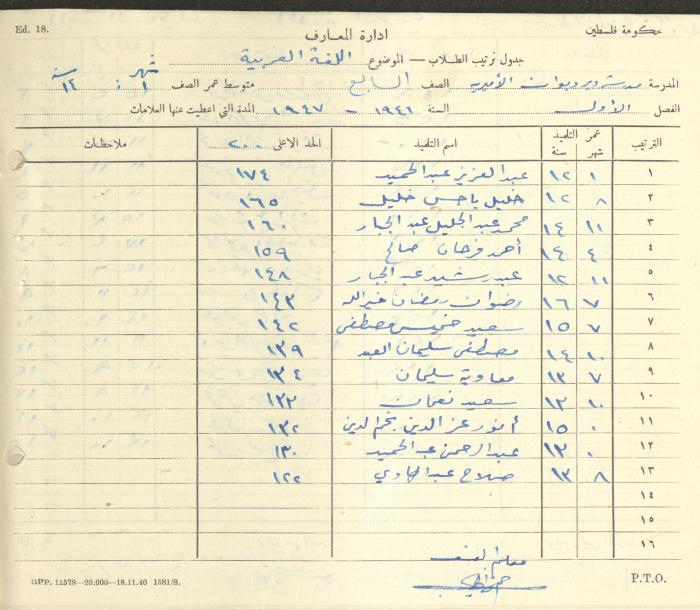 Ed. 18.
حكومة فلسطين
ادارة المعارف
جدول ترتيب الطلاب — الموضوع اللغة العربية
المدرسة مدرسة الأميرية الصف السابع متوسط عمر الصف شهر ١ سنة ١٤
الفصل الأول السنة ١٩٤٦ - ١٩٤٧ المدة التي اعطيت عنها العلامات
الترتيب عمر التلميذ شهر سنة اسم التلميذ الحد الاعلى ٢٠٠ ملاحظات
١ ١ ١٢ عبد العزيز عبد الحميد ١٧٤
٢ ٨ ١٢ خليل ياسين خليل ١٦٥
٣ ١١ ١٤ محمد عبد الجليل عبد الجبار ١٦٠
٤ ٤ ١٤ أحمد فرحان صالح ١٥٩
٥ ١١ ١٢ عبد رشيد عبد الجبار ١٤٨
٦ ٧ ١٦ رضوان رمضان خير الله ١٤٣
٧ ٧ ١٥ سعيد خميس مصطفى ١٤٢
٨ ١٠ ١٤ مصطفى سليمان العبد ١٣٩
٩ ٧ ١٣ معاوية سليمان ١٣٤
١٠ ١٠ ١٣ سعيد نعمان ١٣٣
١١ ٠ ١٥ أنور عز الدين نجم الدين ١٣٢
١٢ ٠ ١٣ عبد الرحمن عبد الحميد ١٣٠
١٣ ٨ ١٣ صلاح عبد الهادي ١٢٢
١٤
١٥
١٦
معلم الصف
GPP. 11578—20,000—18.11.40 1581/8.
P.T.O.